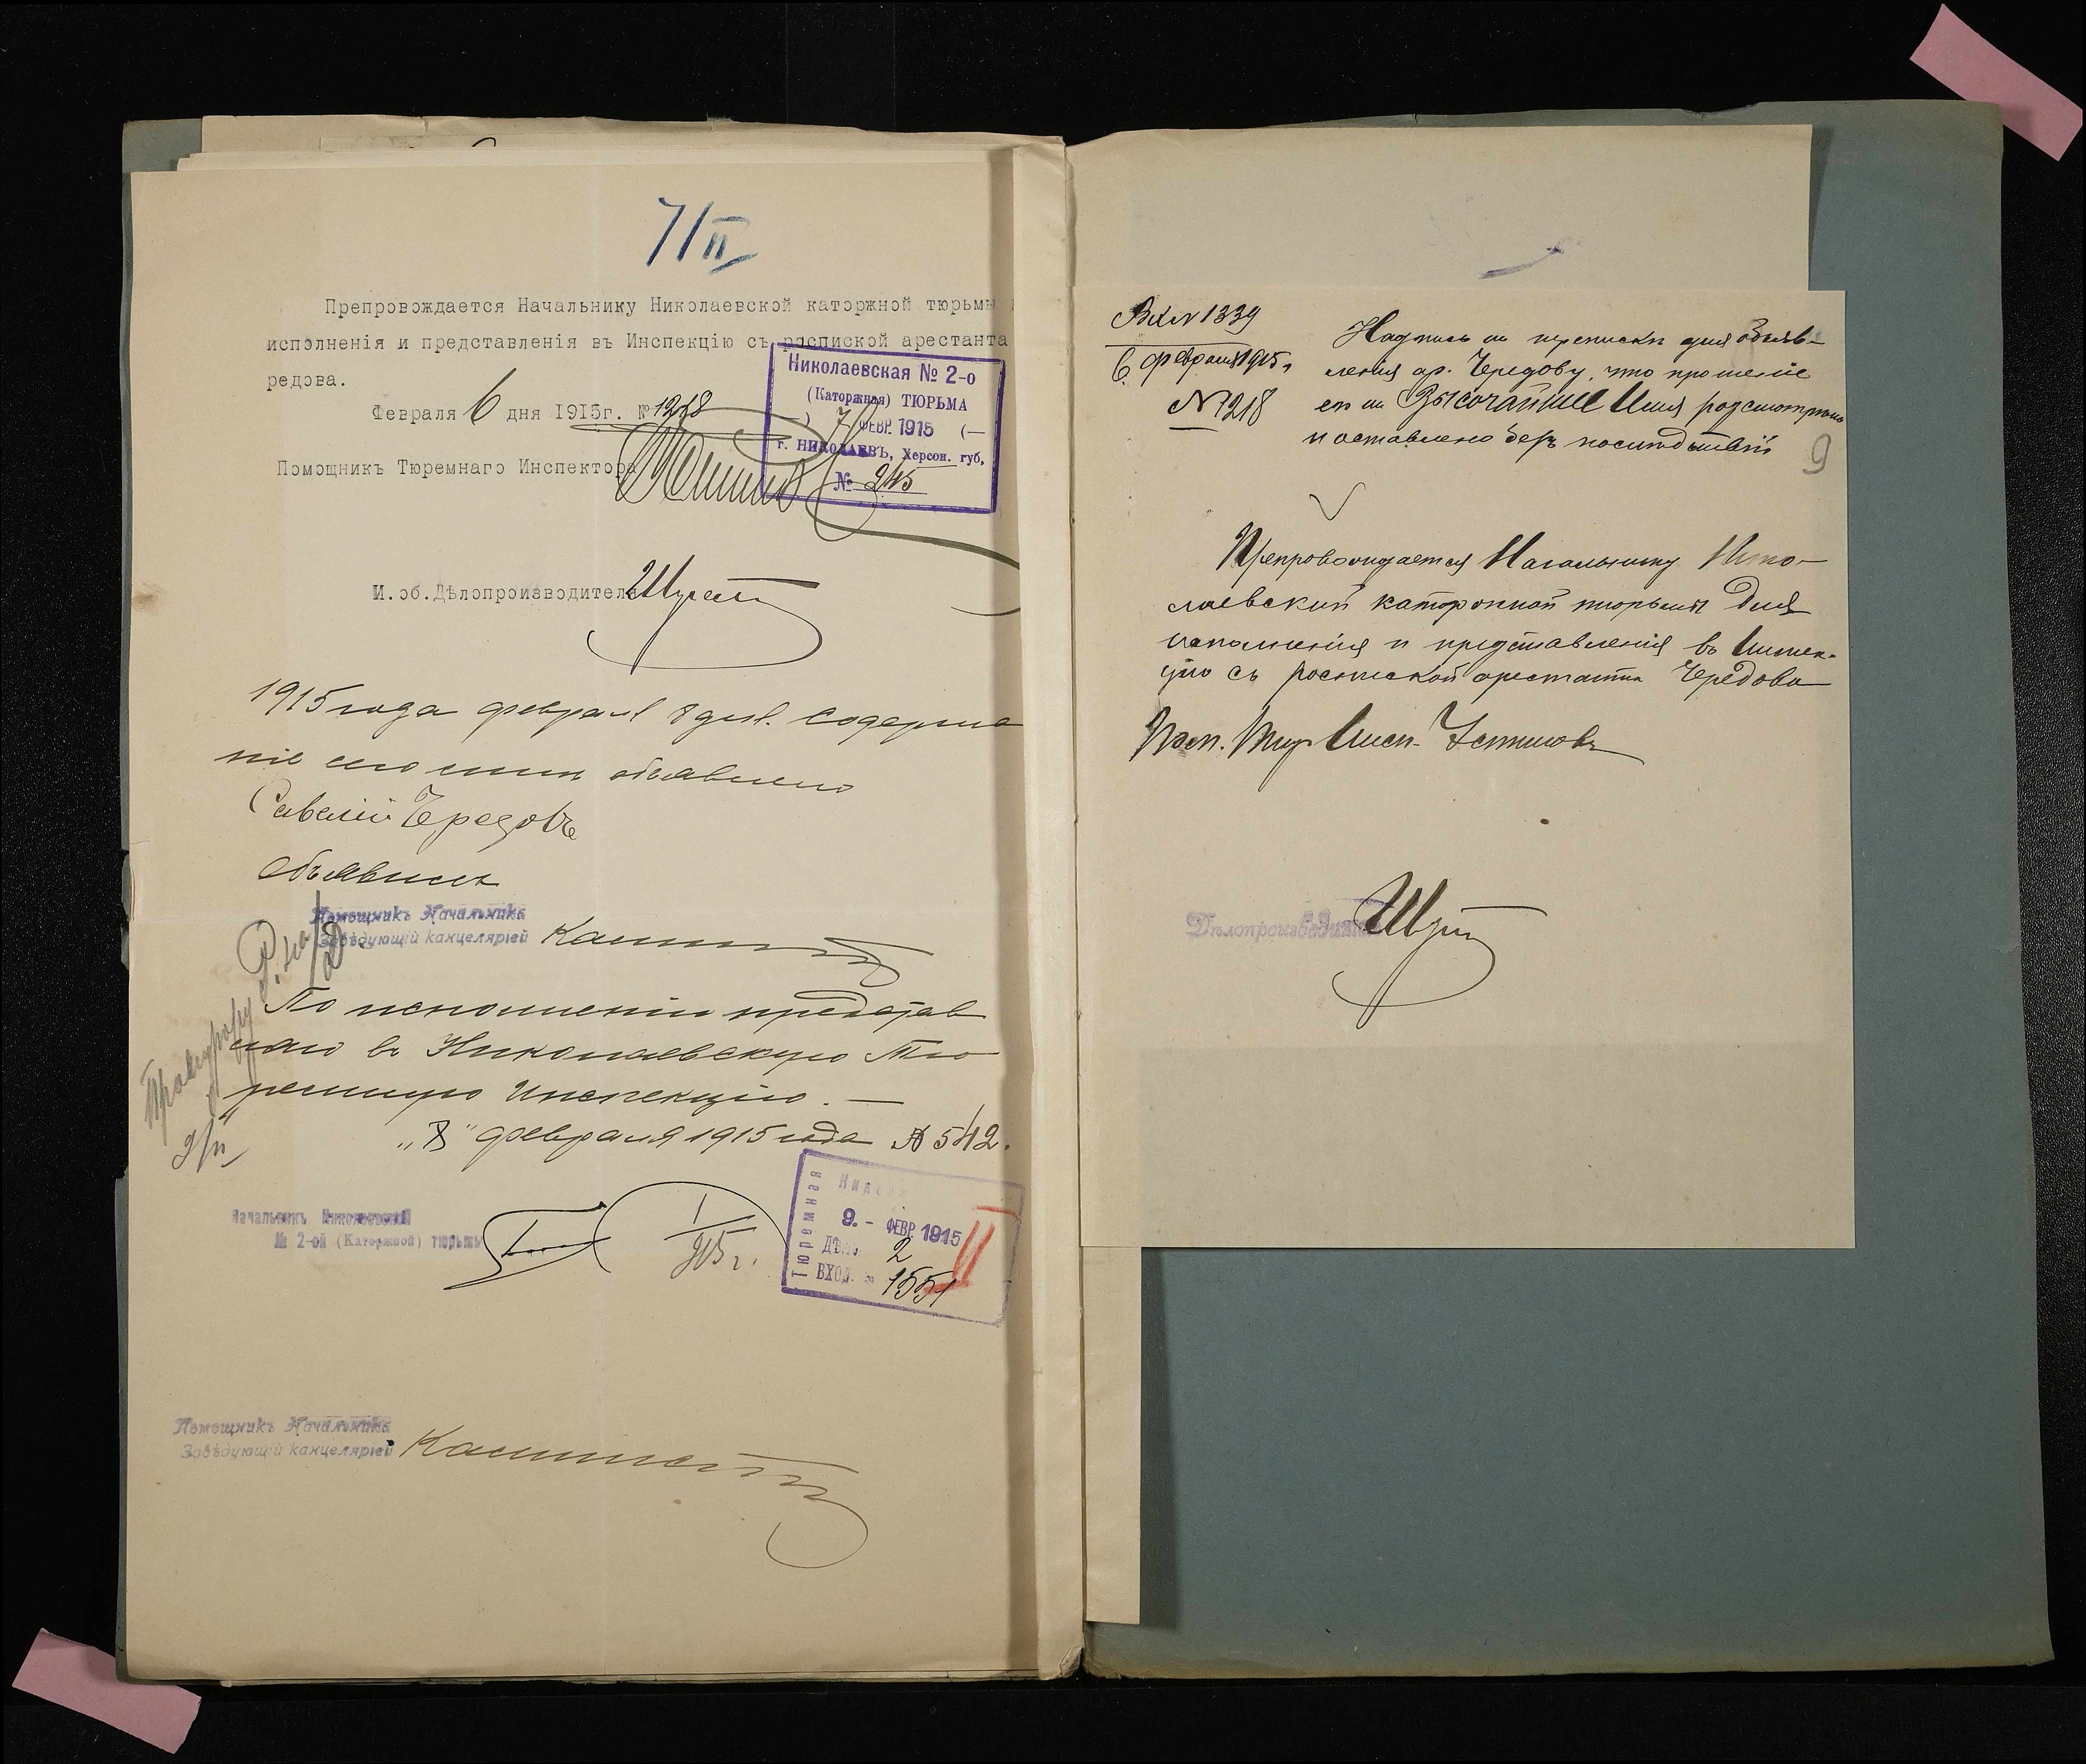 7/II
Препровождается Начальнику Николаевской каторжной тюрьмы
исполненія и представленія въ Инспекцію съ роспиской арестанта
редова.
Февраля 6 дня 1915г. № 1218
Помощникъ Тюремнаго Инспектора
Николаевская № 2-о
(Каторжная) ТЮРЬМА
7 ФЕВР. 1915
г. НИКОЛАЕВЪ, Херсон. губ,
№ 245
И.об.Дѣлопроизводителя
1915 года февраля 8 дня. Содержа
ніе сего мнѣ объявлено
Савелій Чередовъ
Объявилъ
Помощникъ Начальника
Завѣдующій канцеляріей
По исполненіи представ
ляю въ Николаевскую Тю
ремную Инспекцію. —
"8" февраля 1915 года № 542.
Прокурору
9/II
Начальникъ Николаевской
№ 2-ой (Каторжной) тюрьмы
Тюремная
9. - ФЕВР. 1915
2
ВХОД. № 1551
Помощникъ Начальника
Завѣдующій канцеляріей
Вх № 1339
6 февраля 1915 г.
№ 1218
Надпись на перепискѣ для объяв-
ленія ар. Чередову, что прошеніе
его на Высочайшее Имя разсмотрѣно
и оставлено безъ послѣдствій
9
Препровождается Начальнику Нико-
лаевской каторжной тюрьмы для
исполненія и представленія въ Инспек-
цію съ роспиской арестанта Чередова
Пом. Тюр. Инсп. Устиновъ
Дѣлопроизводитель